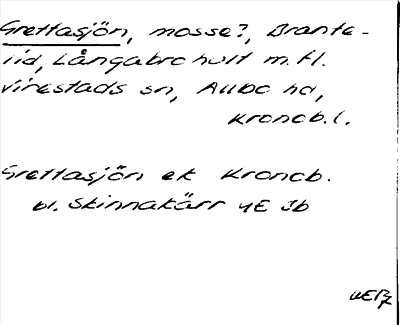 Grettasjön, mosse?, Brante-
iid, Långabro hult m.fl.
Virestads sn, Allbo hd,
Kronob. l.
Grettasjön ek Kronob.
bl. Skinnakärr 4E Jb